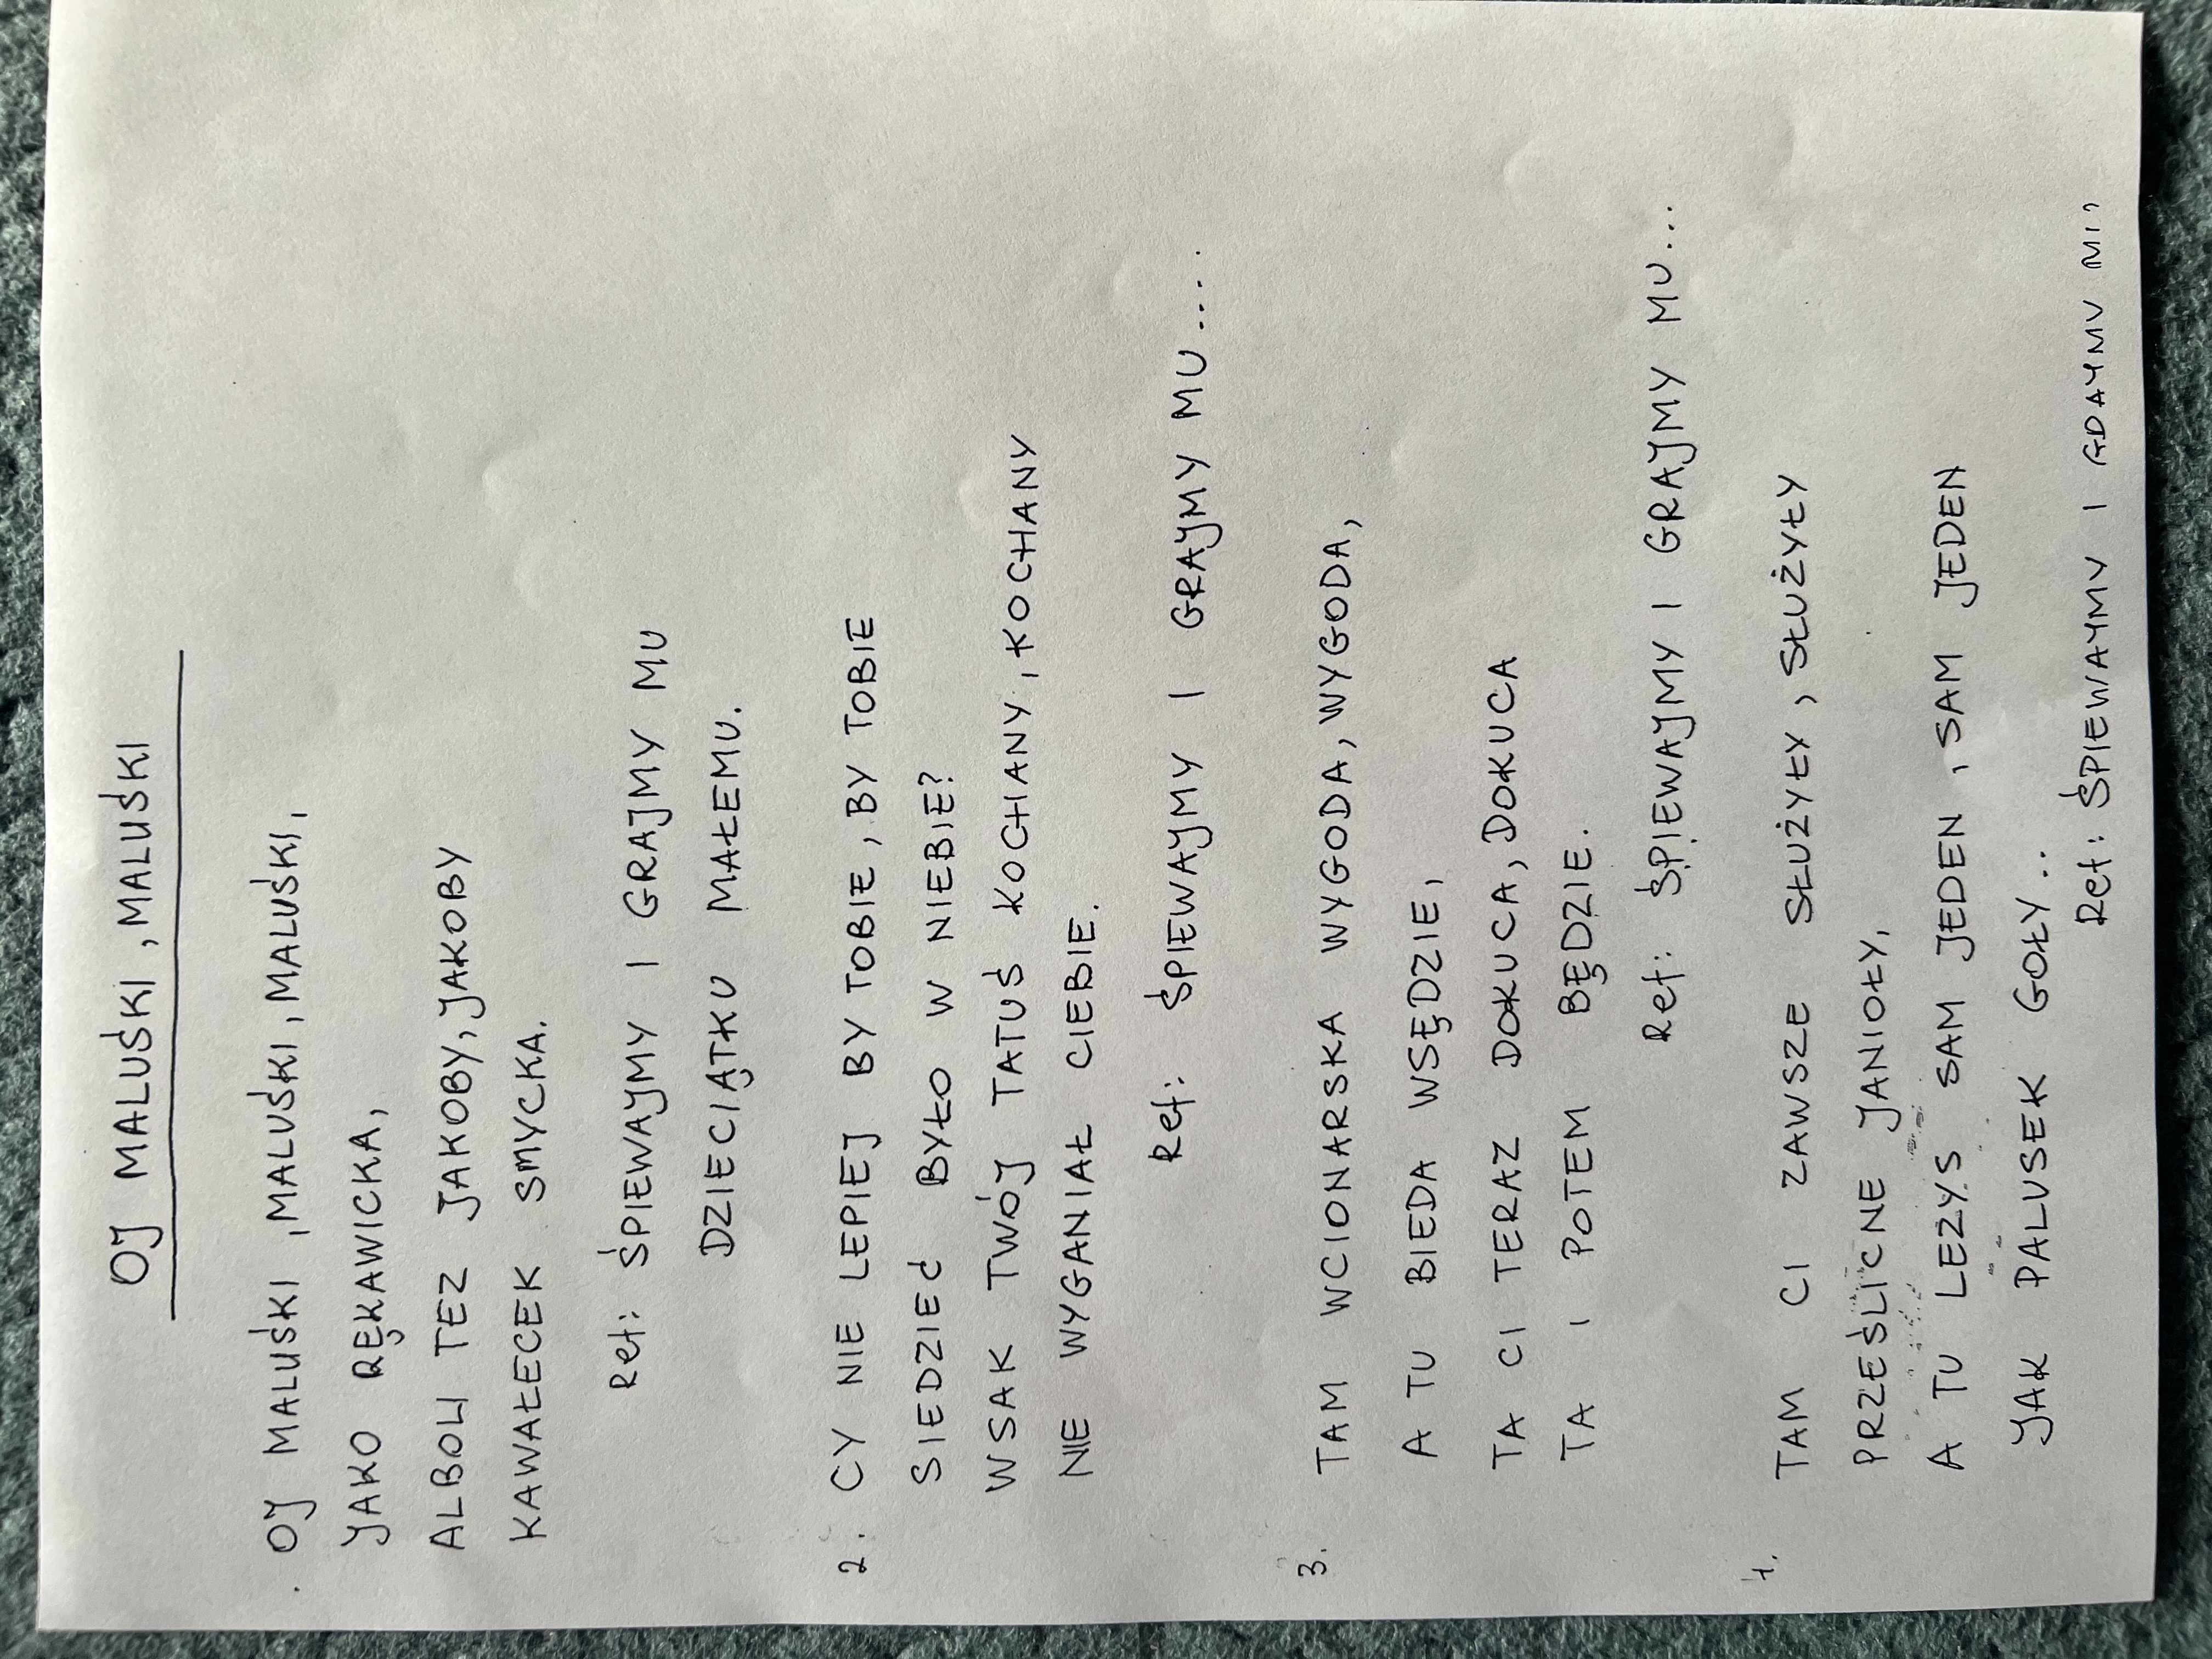 OJ MALUŚKI, MALUŚKI
. OJ MALUŚKI, MALUŚKI, MALUŚKI,
JAKO RĘKAWICKA,
ALBOLI TEZ JAKOBY, JAKOBY
KAWAŁECEK SMYCKA.
Ref: ŚPIEWAJMY I GRAJMY MU
DZIECIĄTKU MAŁEMU.
2. CY NIE LEPIEJ BY TOBIE, BY TOBIE
SIEDZIEĆ BYŁO W NIEBIE?
WSAK TWÓJ TATUŚ KOCHANY, KOCHANY
NIE WYGANIAŁ CIEBIE.
Ref: ŚPIEWAJMY I GRAJMY MU....
3. TAM WCIONARSKA WYGODA, WYGODA,
A TU BIEDA WSĘDZIE,
TA CI TERAZ DOKUCA, DOKUCA
TA I POTEM BĘDZIE.
Ref: ŚPIEWAJMY I GRAJMY MU...
4. TAM CI ZAWSZE SŁUŻYŁY, SŁUŻYŁY
PRZEŚLICNE JANIOŁY,
A TU LEZYS SAM JEDEN, SAM JEDEN
JAK PALUSEK GOŁY..
Ref: ŚPIEWAJMY I GRAJMY